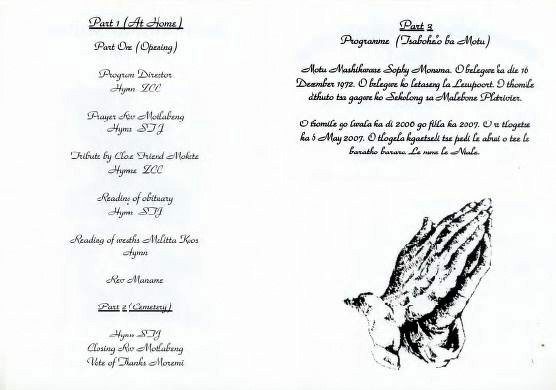 Part 1 (At Home)
Part One (Opening)
Program Director
Hymn ZCC
Prayer Rev Motlabeng
Hymn STJ
Tribute by Close Friend Mokete
Hymn ZCC
Reading of obituary
Hymn STJ
Reading of wreaths Melitta Koos
Hymn
Rev Maname
Part 2 (Cemetery)
Hymn STJ
Closing Rev Motlabeng
Vote of Thanks Moremi
Part 3
Programme (Tsabohelo ba Motu)
Motu Mashikwane Sophy Monama. O belegwe ka die 16
Dezember 1972. O belegwe ko letaseng la Leeupoort. O thomile
dithuto tsa gagwe ko Sekolong sa Malebone Platrivier.
O thomile go lwala ka di 2006 go fihla ka 2007. O re tlogetse
ka 5 May 2007. O tlogela kgaetsedi tse pedi le abuti o tee le
baratho bararo. Le mme le Ntate.